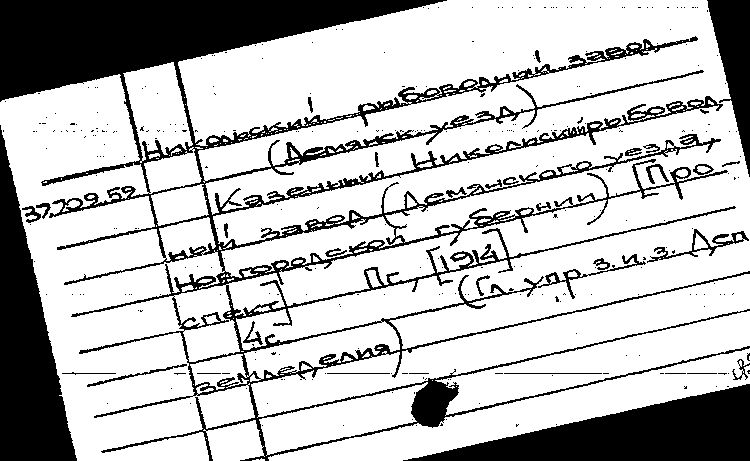 Никольский рыбоводный завод
(Демянск. уезд)
37.709.59
Казенный Никольский рыбовод-
ный завод (Демянского уезда,
Новгородской губернии) [Про-
спект]. Пг., [1914]
4с. (Гл. упр. з. и. з. Деп
земледелия).